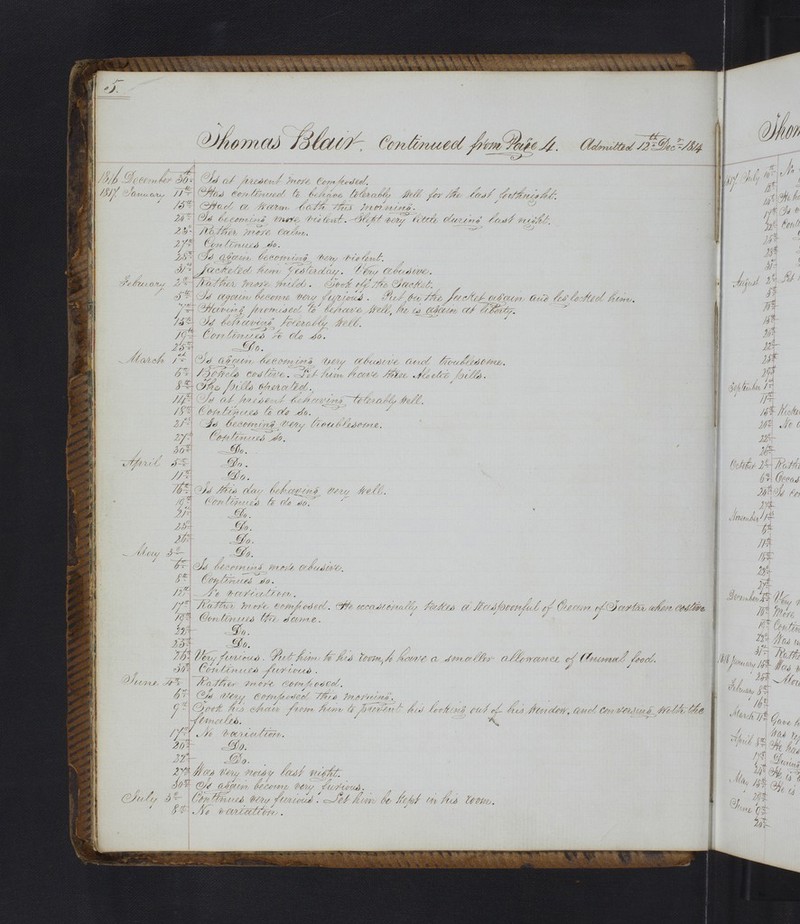 5.
Thomas Blair. Continued from Page 4. Admitted 12th Decr 1814
1816 December 30th Is at present more composed.
1817 January 11th Has continued to behave tolerably well for the last fortnight.
15th Had a warm bath this morning.
20th Is becoming more violent. Slept very little during last night.
23d Rather more calm.
27th Continues so.
28th Is again becoming very violent.
31st Jacketed him yesterday. Very abusive.
February 2d Rather more mild. Took off the Jacket.
5th Is again become very furious. Put on the Jacket again and leg locked him.
7th Having promised to behave well, he is again at liberty.
15th Is behaving tolerably well.
19th Continues to do so.
25th Do.
March 1st Is again becoming very abusive and troublesome.
6th Bowels costive. Let him have three Aloetic pills.
8th The pills operated.
14th Is at present behaving tolerably well.
18th Continues to do so.
21st Is becoming very troublesome.
27th Continues so.
30th Do.
April 5th Do.
11th Do.
16th Is this day behaving very well.
19th Continues to do so.
21st Do.
23d Do.
26th Do.
May 3d Do.
6th Is becoming more abusive.
8th Continues so.
12th No variation.
17th Rather more composed. He occasionally takes a teaspoonful of Cream of Tartar when costive
19th Continues the same.
22d Do.
25th Do.
26th Very furious. Put him to his room, to have a smaller allowance of Animal food.
30th Continues furious.
June 4th Rather more composed.
6th Is very composed this morning.
9th Took his chair from him to prevent his looking out of his Window, and conversing with the
females.
17th No variation.
20th Do.
22d Do.
27th Was very noisy last night.
30th Is again become very furious.
July 3d Continues very furious. Let him be kept in his room.
8th No variation.
1817 July
August
September
October
November
December
1818 January
February
March
April
May
June